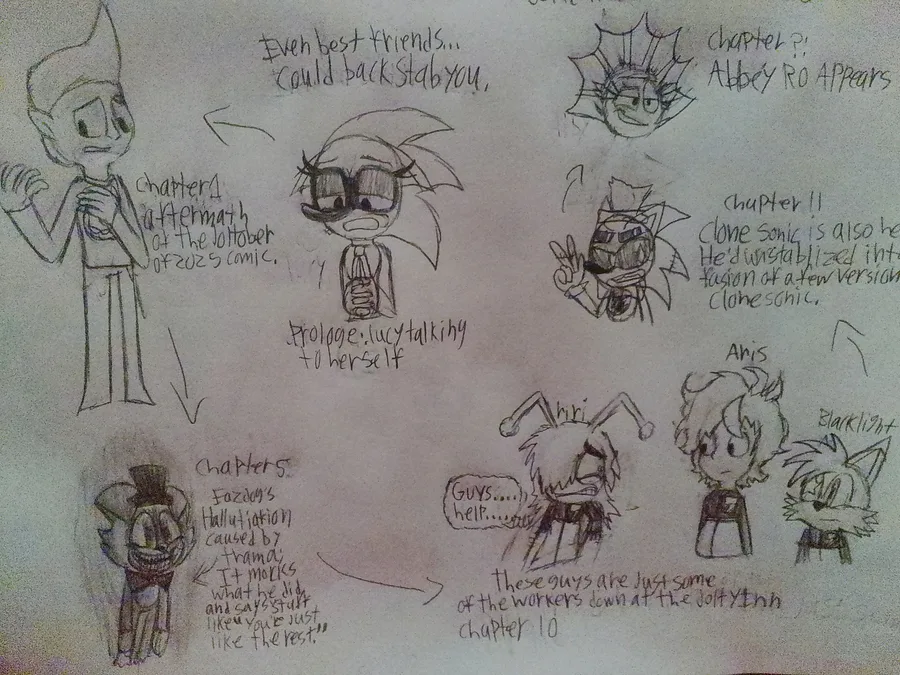 Even best friends...
Could backstab you.
Prologe: lucy talking
to herself
Chapter 1
aftermath
of the Joltober
of 2025 comic.
Chapter 5
Fazdog's
Hallutiation
caused by
trama;
It mocks
what he did
and says stuff
like "you're just
like the rest."
Guys....
help....
Aris
Blacklight
these guys are just some
of the workers down at the Jolty Inn
Chapter 10
Chapter 11
Clone Sonic is also he
He'd unstablized int
fusion of a few version
Clone sonic.
Chapter ?:
Abbey Ro Appears